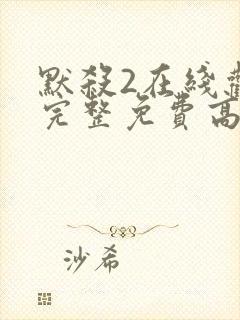 默殺2在綫
完整免費高
沙希